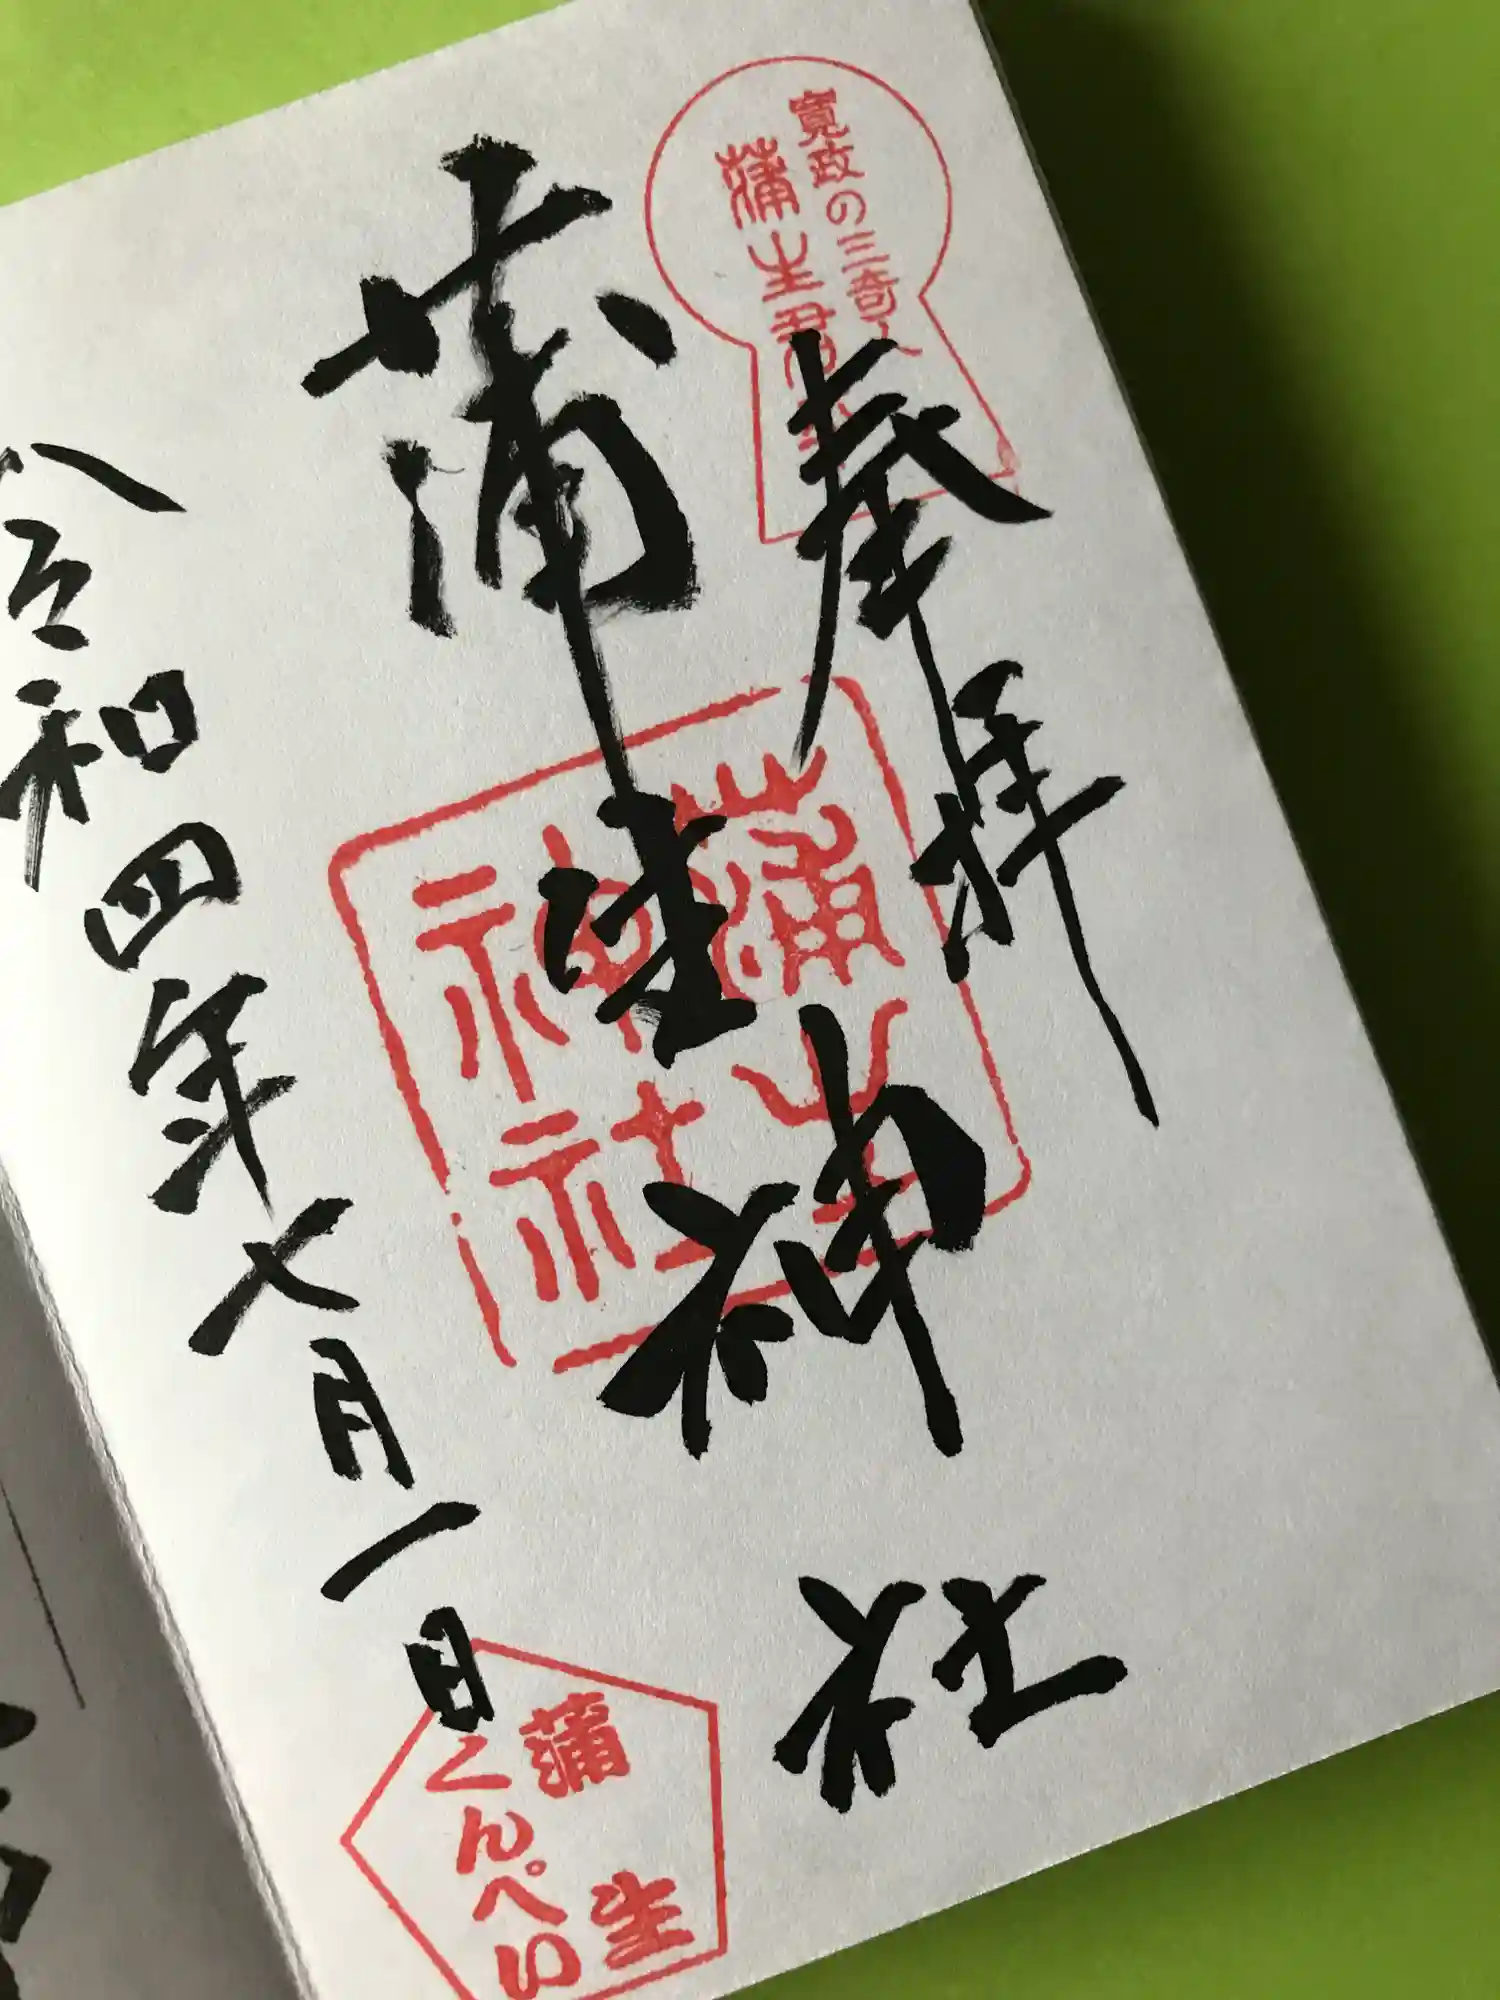 寛政の三奇人
蒲生君平
奉拝
蒲生神社
蒲生
神社
令和四年七月一日
蒲生
くんぺい